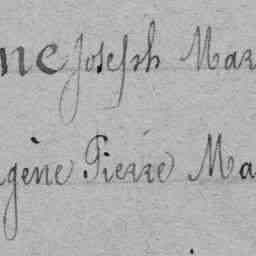 ne Joseph Mar
gène Pierre Ma